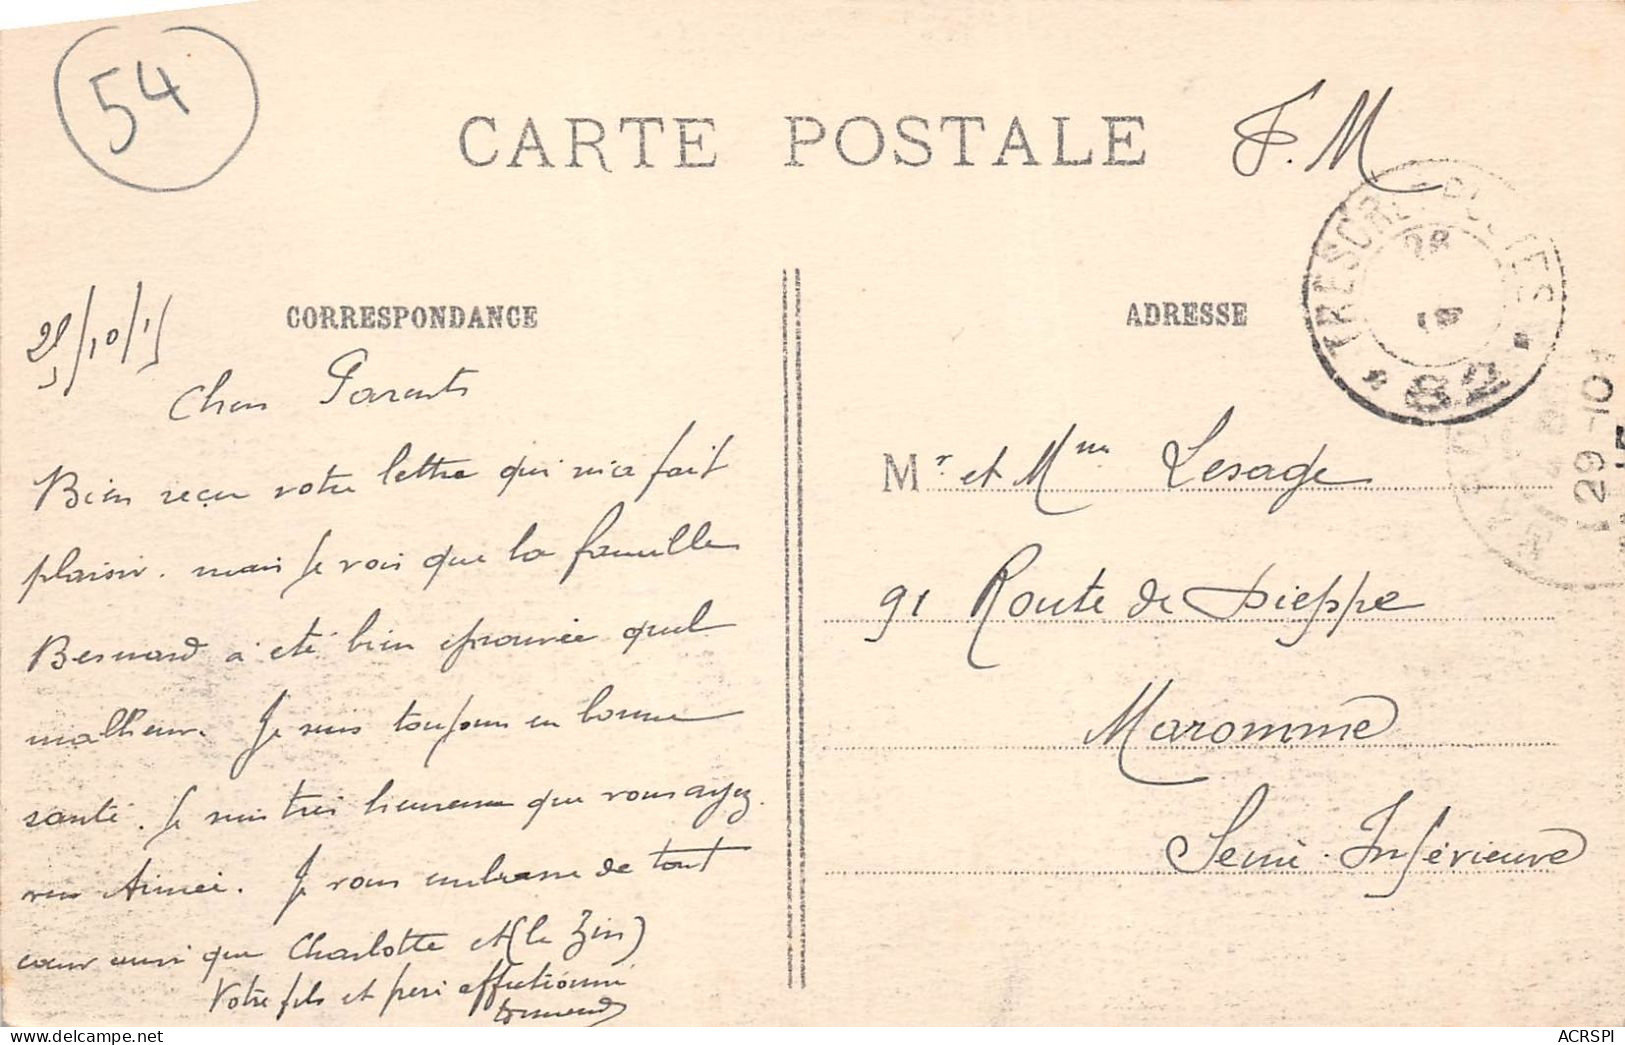 54
CARTE POSTALE
F.M
TRESOR ET POSTES
28
* 82 *
29-10
CORRESPONDANCE
ADRESSE
28/10/15
Chers Parents
Bien reçu votre lettre qui m'a fait
plaisir. mais je vois que la famille
Bernard a été bien éprouvée quel
malheur. Je suis toujours en bonne
santé. Je suis très heureux que vous ayez
vu Aimée. Je vous embrasse de tout
cœur ainsi que Charlotte et (le Zin)
Votre fils et frère affectionné
Mr et Mme Lesage
91 Route de Dieppe
Maromme
Seine-Inférieure
ACRSPI